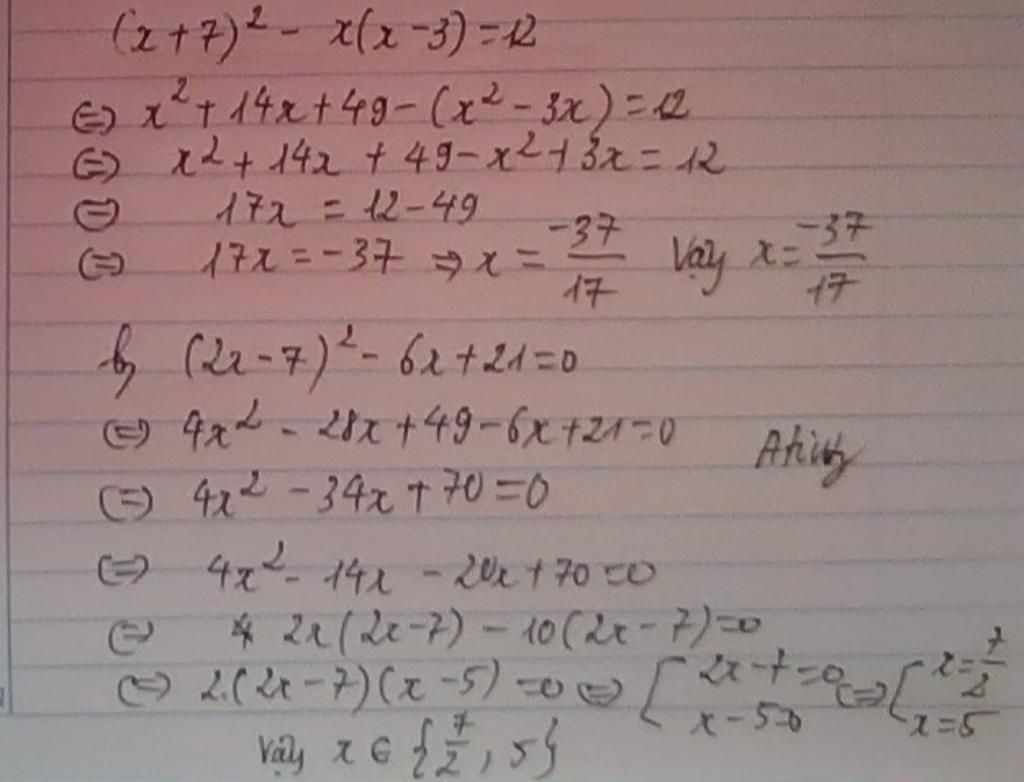 (x+7)² - x(x-3)=12
⇔ x² + 14x + 49 - (x² - 3x) = 12
⇔ x² + 14x + 49 - x² + 3x = 12
⇔ 17x = 12 - 49
⇔ 17x = -37 ⇒ x = -37/17 Vậy x = -37/17
b, (2x-7)² - 6x + 21 = 0
⇔ 4x² - 28x + 49 - 6x + 21 = 0
⇔ 4x² - 34x + 70 = 0
⇔ 4x² - 14x - 20x + 70 = 0
⇔ 2x(2x-7) - 10(2x-7) = 0
⇔ 2.(2x-7)(x-5) = 0 ⇔ [ 2x-7=0 ⇔ [ x=7/2
x-5=0 x=5
Vậy x ∈ {7/2, 5}